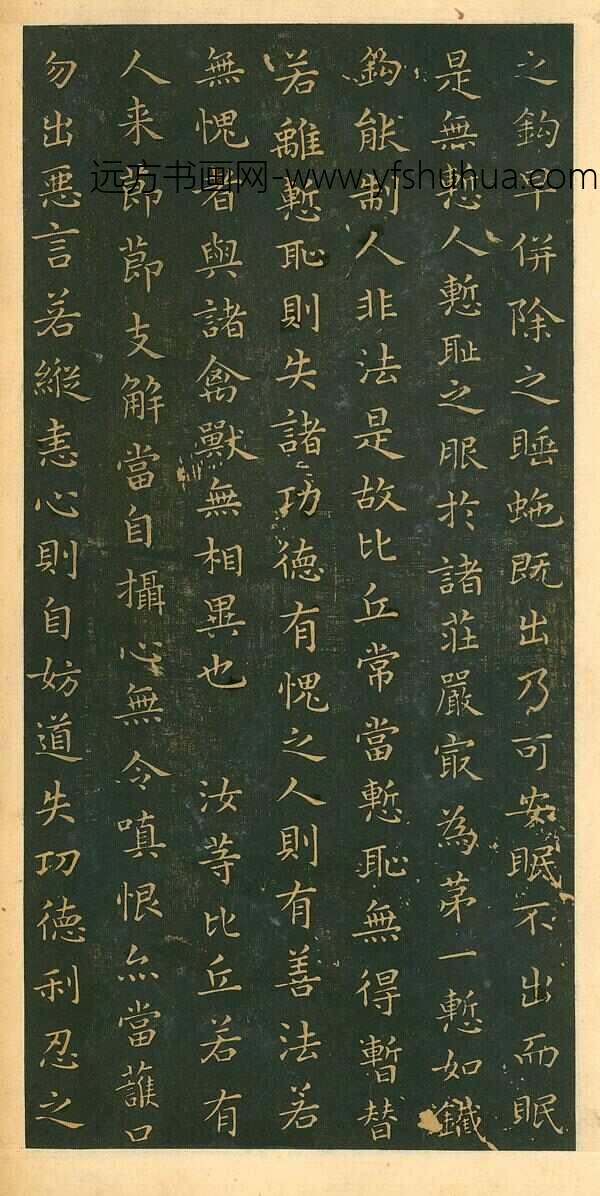 之鈎早併除之睡蛇既出乃可安眠不出而眠
是無慙人慙耻之服於諸莊嚴冣為苐一慙如鐵
鈎能制人非法是故比丘常當慙恥無得暫替
若離慙恥則失諸功德有愧之人則有善法若
無愧者與諸禽獸無相異也 汝等比丘若有
人来節節支解當自攝心無令嗔恨亦當護口
勿出惡言若縱恚心則自妨道失功德利忍之
远方书画网-www.yfshuhua.com